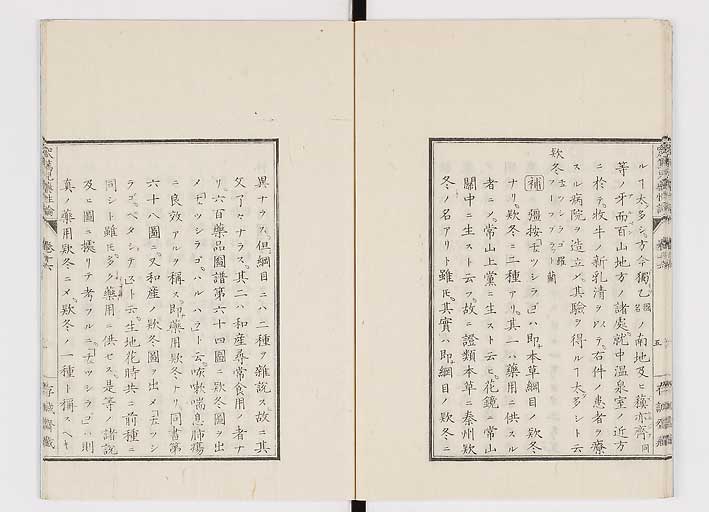 ルヿ太多シ方今獨乙國名ノ南地及ヒ
等ノ牙而百山地方ノ諸處就中温泉室ノ近方
ニ於テ牧牛ノ新乳清ヲ以テ右件ノ患者ヲ療
スル病院ヲ造立シ其驗ヲ得ルヿ太多シト云
欵冬
補 彊按ニ ツシラゴハ即本草綱目ノ欵冬
ナリ欵冬ニ二種アリ其一ハ藥用ニ供スル
者ニノ常山上黨ニ生スト云ヒ花鏡ニ常山
關中ニ生スト云フ故ニ證類本草ニ秦州欵
冬ノ名アリト雖𪜈其實ハ即綱目ノ欵冬ニ
異ナラス但綱目ニハ二種ヲ雜説ス故ニ其
文了々ナラス其二ハ和産尋常食用ノ者ナ
リ六百藥品圖譜第六十四圖ニ欵冬圖ヲ出
メ ツシラゴハルハ ト云咳嗽喘息肺瘍
ニ良效アルヲ稱ス即藥用欵冬ナリ同書第
六十八圖ニ又和産ノ欵冬圖ヲ出メ ツシ
ラゴペタシテ ト云生地花時共ニ前種ニ
同シト雖𪜈多ク藥用ニ供セス是等ノ諸説
及ヒ圖ニ據リテ考フルニ ツシラゴハ則
眞ノ藥用欵冬ニメ欵冬ノ一種ト稱スヘキ